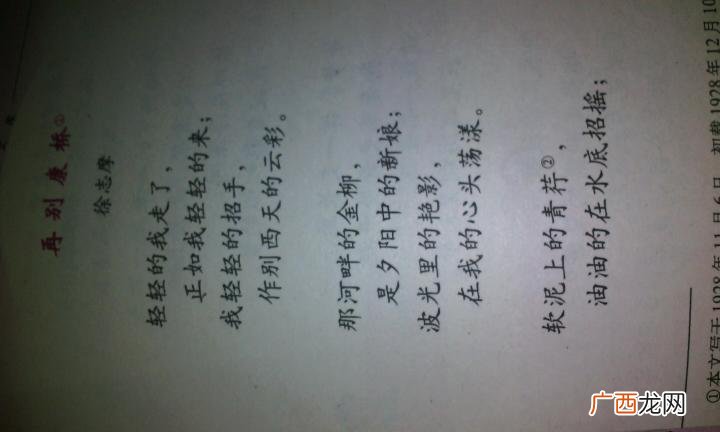 再别康桥①
徐志摩
轻轻的我走了，
正如我轻轻的来；
我轻轻的招手，
作别西天的云彩。
那河畔的金柳，
是夕阳中的新娘；
波光里的艳影，
在我的心头荡漾。
软泥上的青荇②，
油油的在水底招摇；
①本文写于1928年11月6日，初载1928年12月10
广西龙网